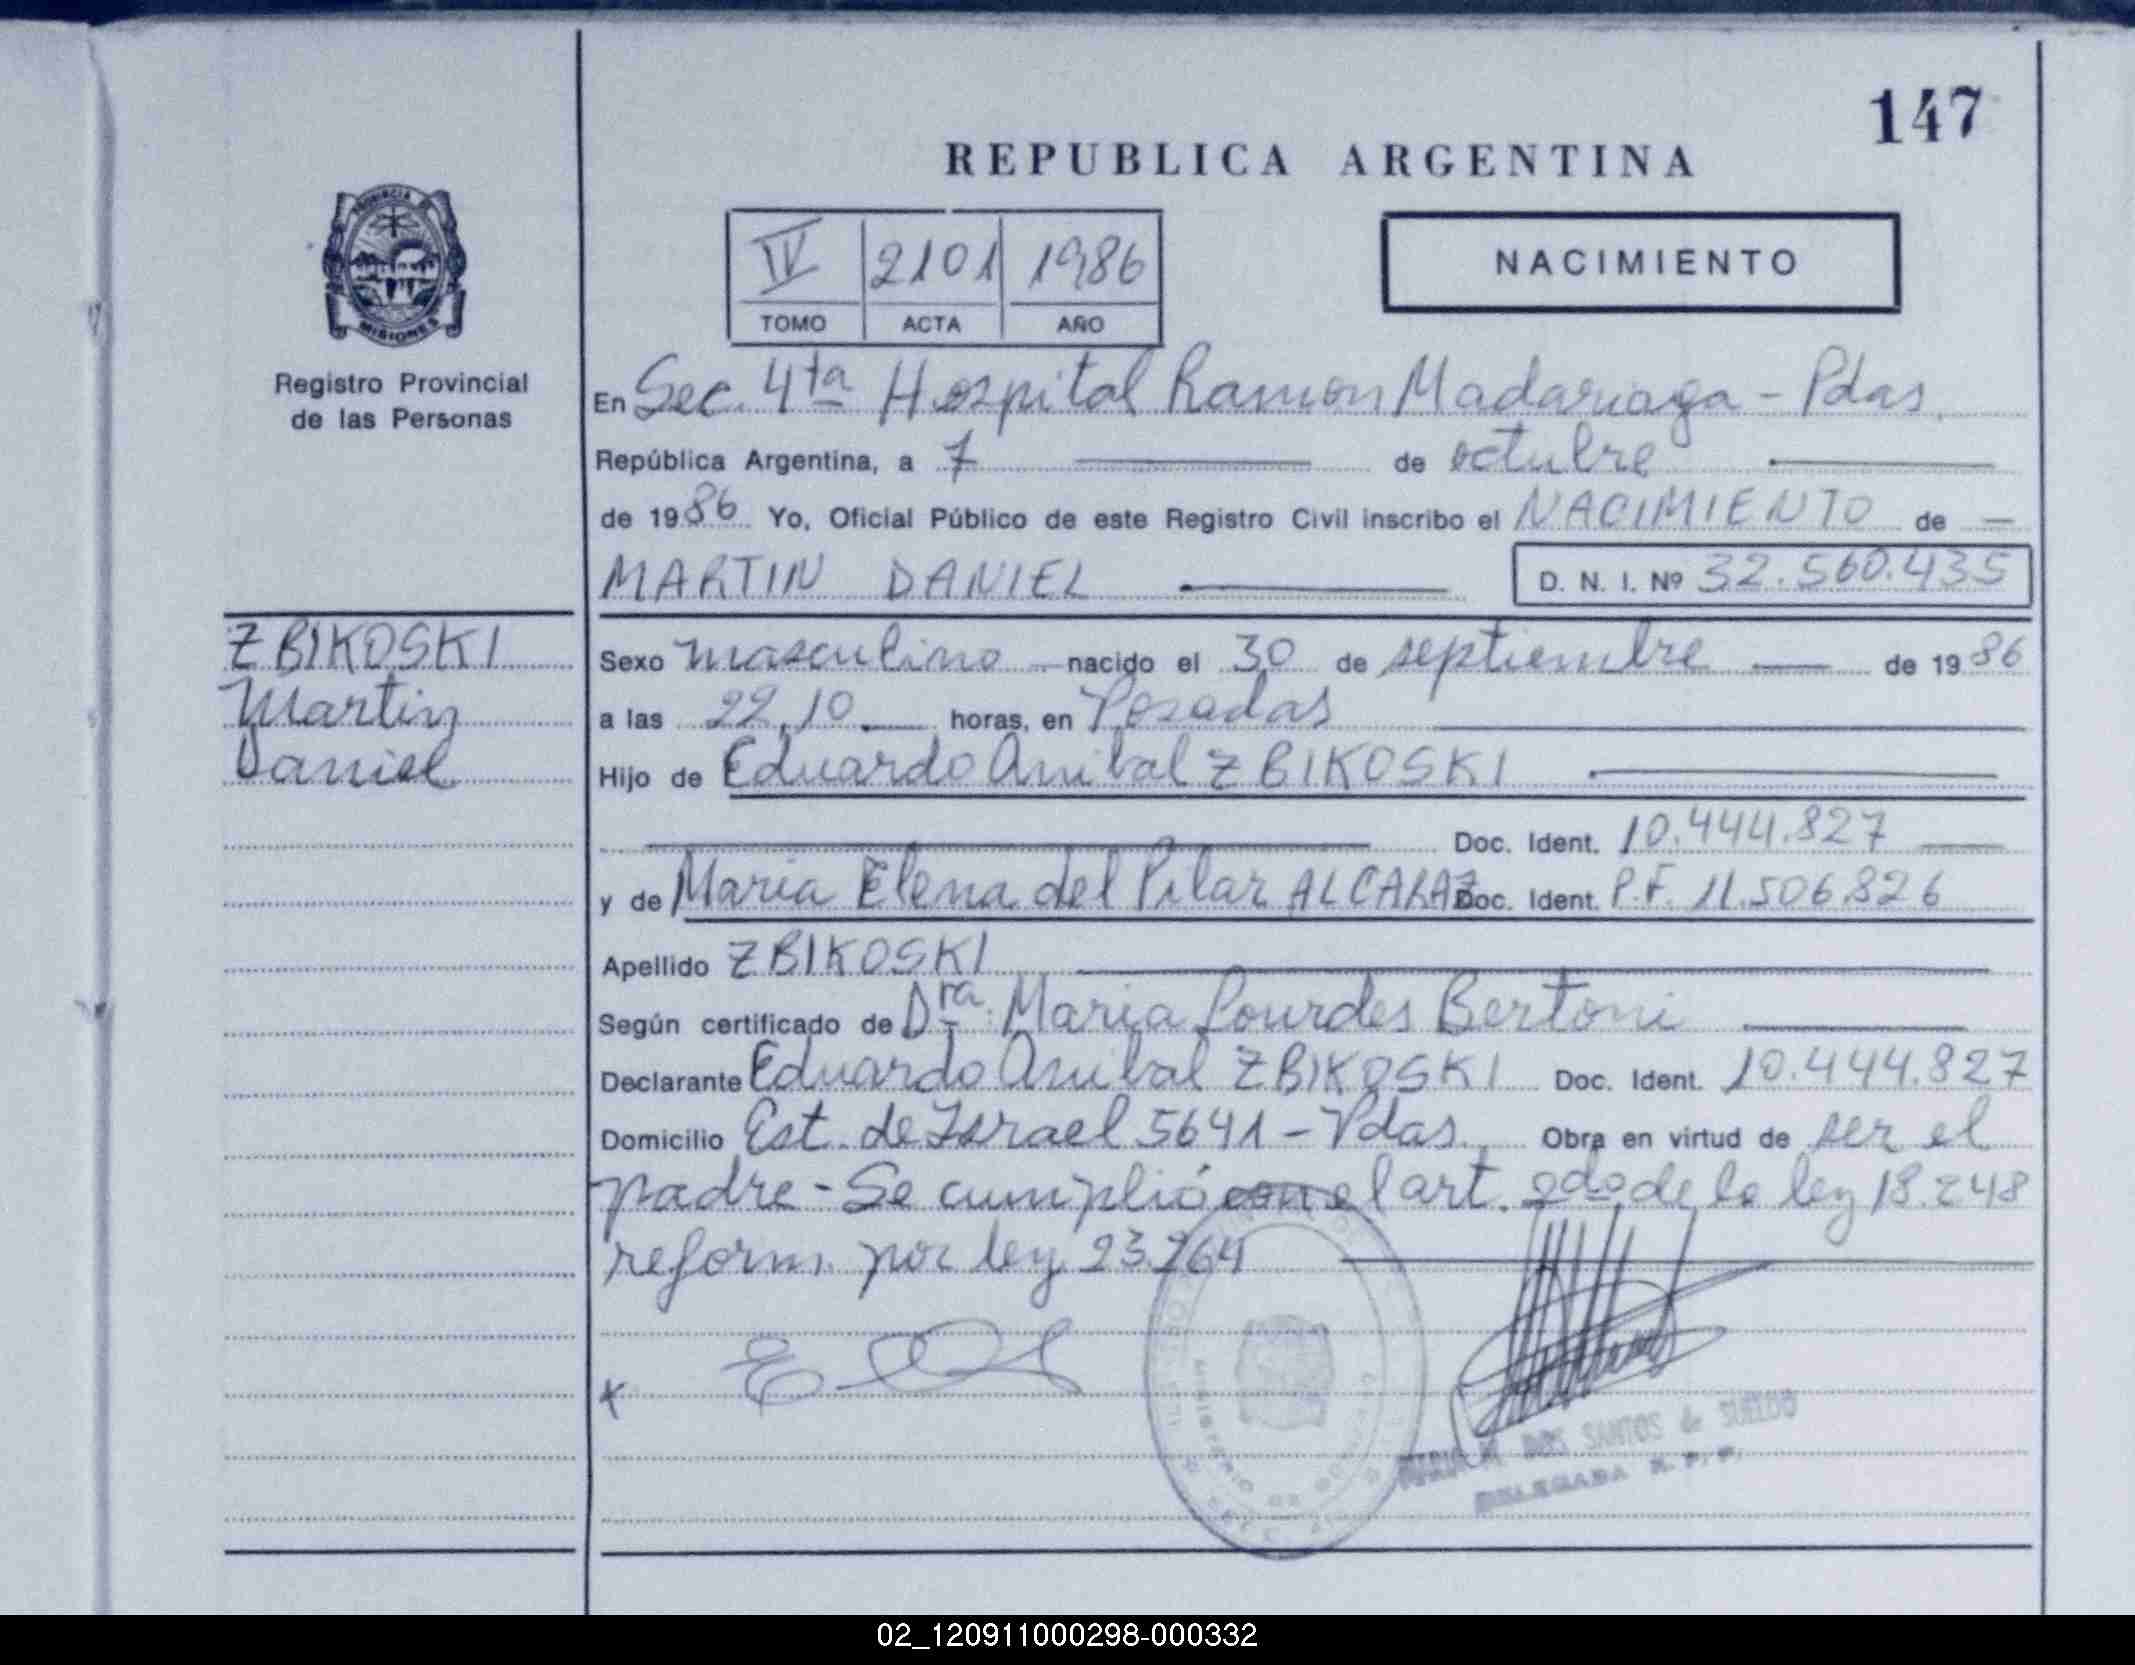 147
REPUBLICA ARGENTINA
PROVINCIA DE
MISIONES
Registro Provincial
de las Personas
IV 2101 1986
TOMO ACTA AÑO
NACIMIENTO
En Sec. 4ta Hospital Ramon Madariaga - Pdas.
República Argentina, a 7 de octubre
de 1986 Yo, Oficial Público de este Registro Civil inscribo el NACIMIENTO de —
MARTIN DANIEL D. N. I. Nº 32.560.435
ZBIKOSKI
Martin
Daniel
Sexo masculino nacido el 30 de septiembre de 1986
a las 22,10 horas, en Posadas
Hijo de Eduardo Anibal ZBIKOSKI
Doc. Ident. 10.444.827
y de Maria Elena del Pilar ALCARAZ Doc. Ident. P.F. 11.506.826
Apellido ZBIKOSKI
Según certificado de Dra. Maria Lourdes Bertoni
Declarante Eduardo Anibal ZBIKOSKI Doc. Ident. 10.444.827
Domicilio Est. de Israel 5641 - Pdas. Obra en virtud de ser el
padre - Se cumplió con el art. 2do de la ley 18.248
reform. por ley 23.264
DOS SANTOS de SUELDO
DELEGADA R. P. P.
02_120911000298-000332